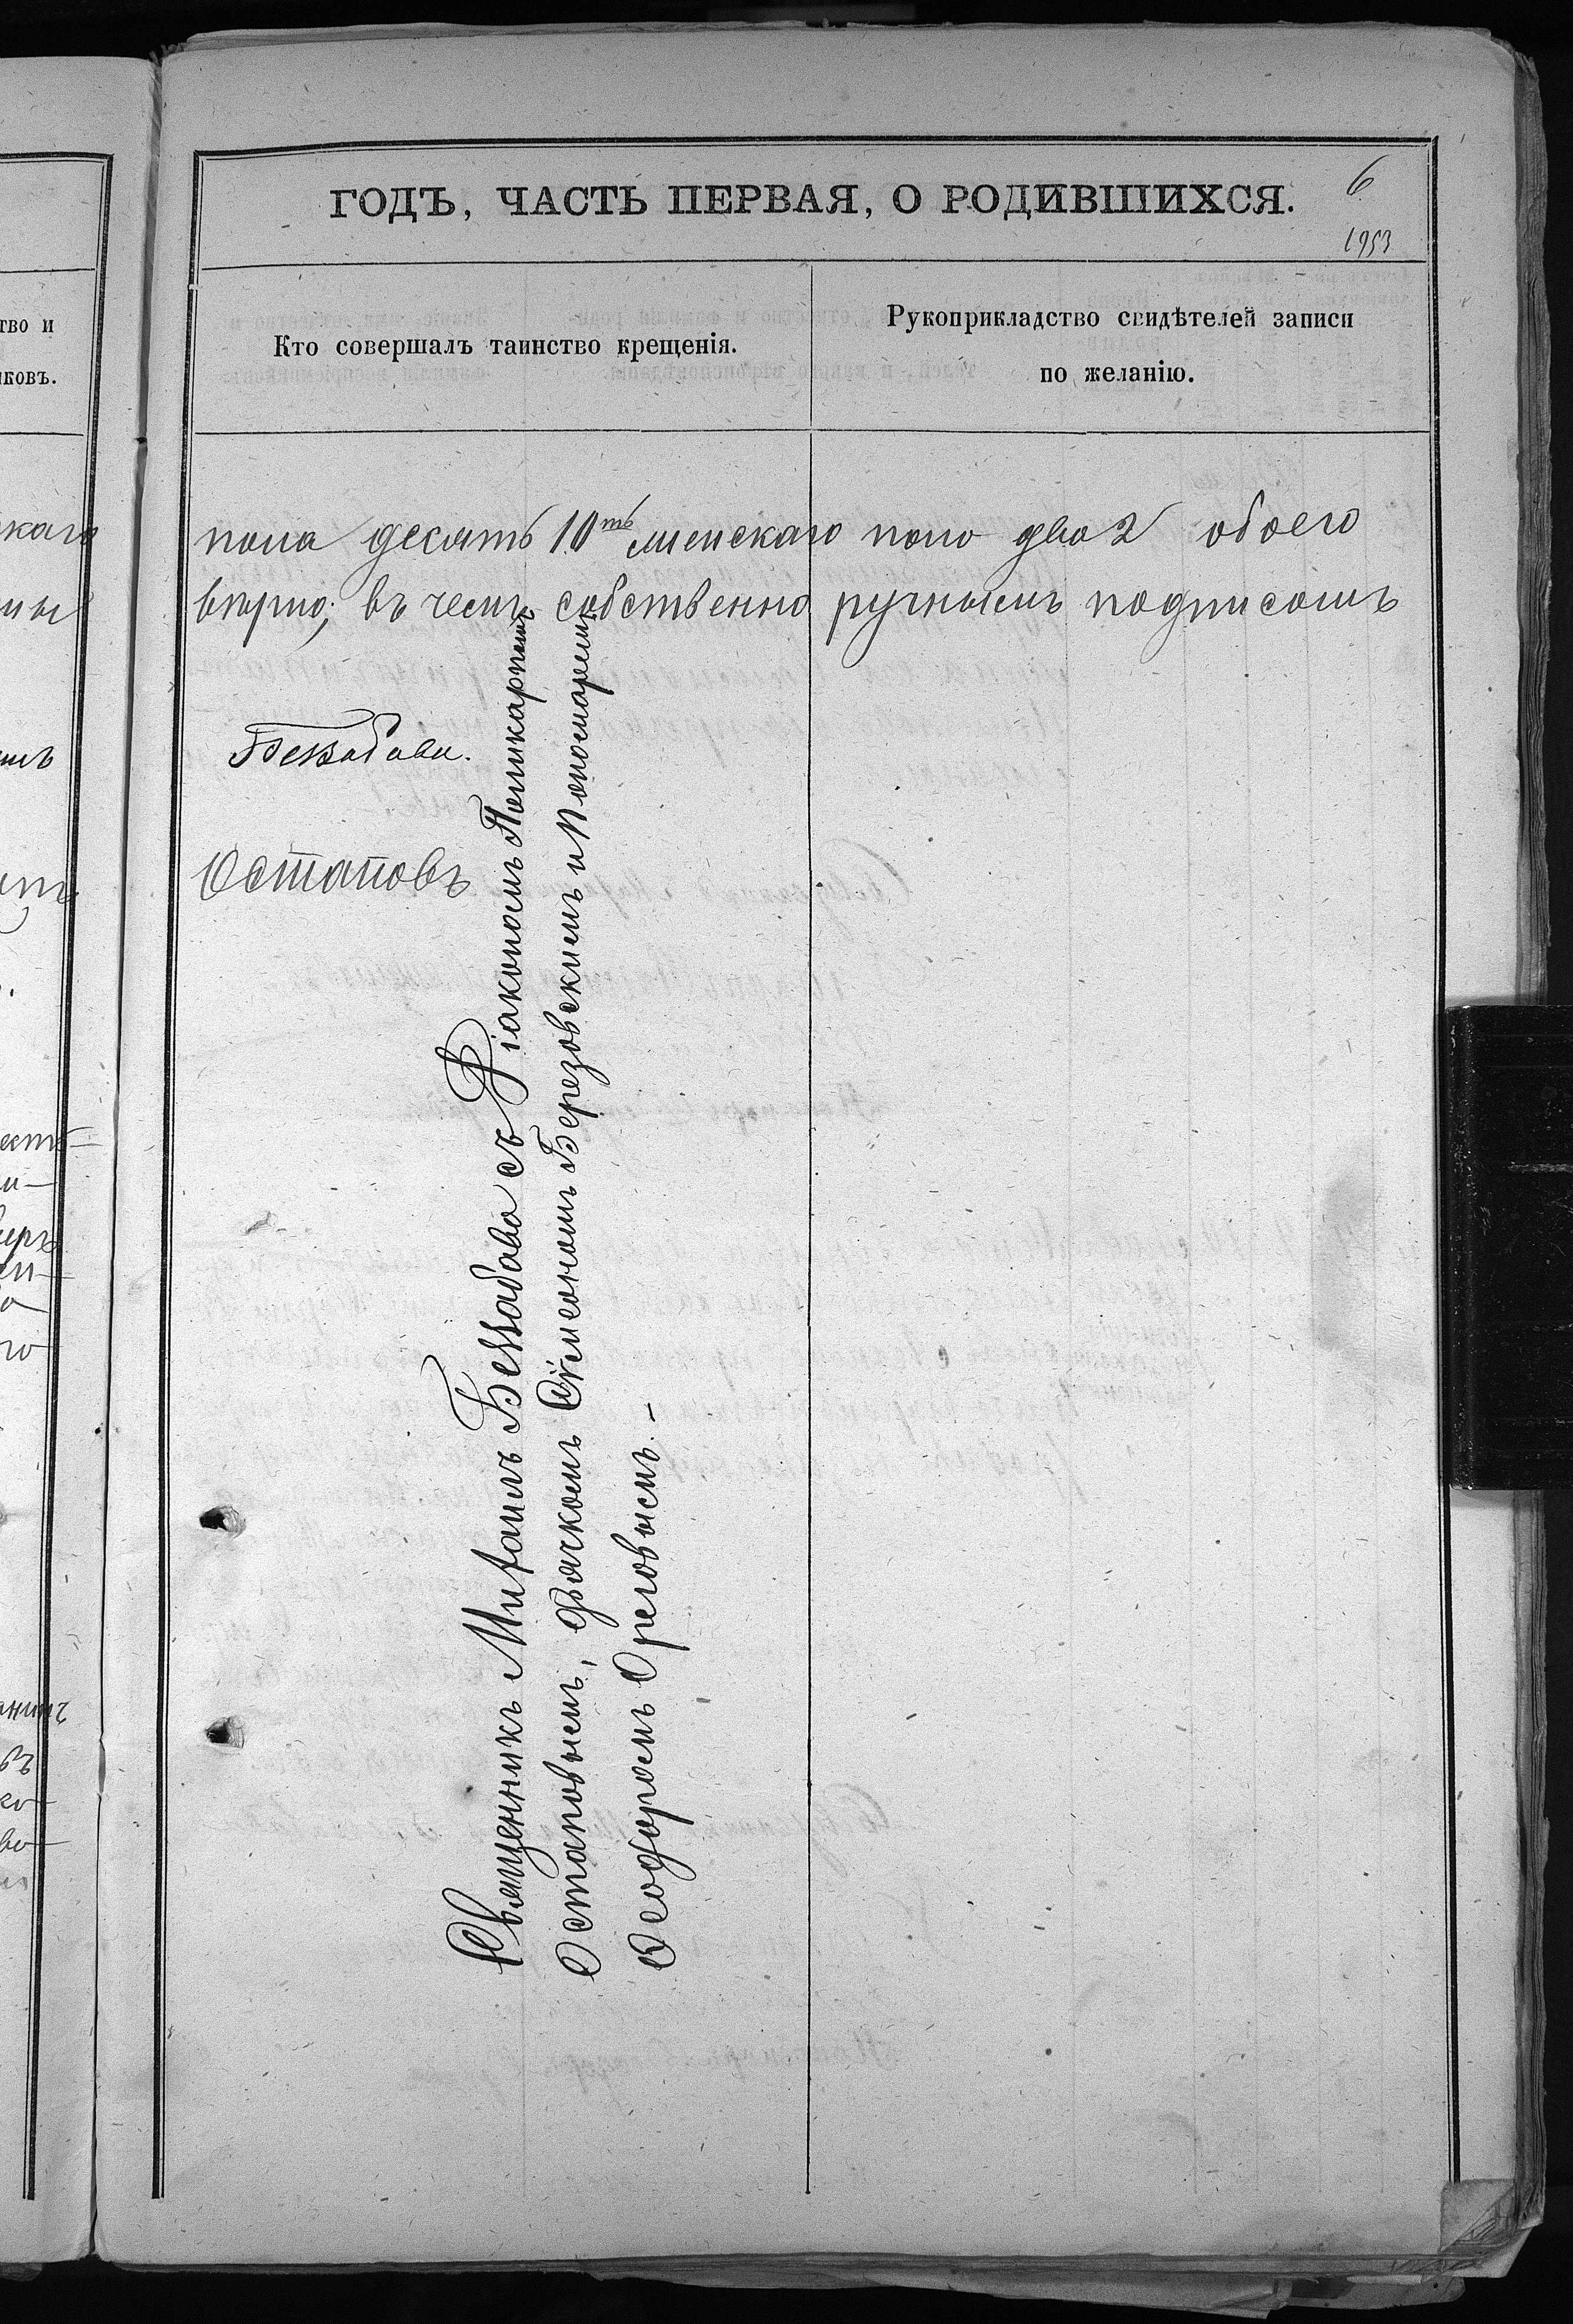 ГОДЪ, ЧАСТЬ ПЕРВАЯ, О РОДИВШИХСЯ.
6
1953
тво и
иковъ.
Кто совершалъ таинство крещенія.
Рукоприкладство свидѣтелей записи
по желанію.
каго
пола десять 10ть женскаго поло два 2 обоего
вѣрно; въ чемъ собственно ручнымъ подписомъ
Беззабава.
Остаповъ
Священникъ Митаилъ Беззабава съ Діакономъ Поликарпомъ
Остаповымъ, дячкомъ Сѵмеономъ Березовскимъ и Пономаремъ
Ѳеодоромъ Ореговымъ.